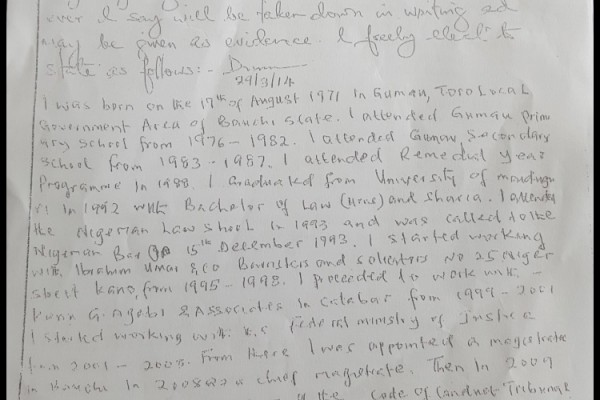 ever I say will be taken down in writing ad
may be given as evidence. I freely elect to
state as follows:-
24/3/14
I was born on the 17th of August 1971 in Gumau, Toro Local
Government Area of Bauchi State. I attended Gumau Prim
ary School from 1976 - 1982. I attended Gumau Secondary
School from 1983 - 1987. I attended Remedial Year
Programme in 1988. I Graduated from University of maidugu
ri in 1992 with Bachelor of Law (Hons) and Sharia. I attended
the Nigerian Law School in 1993 and was called to the
Nigerian Bar on 15th December 1993. I started working
with Ibrahim Umar & Co Barristers and solicitors No 25 Niger
street Kano, from 1995 - 1998. I proceeded to work with -
& Associates in Calabar from 1999 - 2001
I started working with the Federal ministry of Justice
from 2001 - 2003. From there I was appointed a magistrate
in Bauchi in 2003 as a chief magistrate. Then in 2009
the Code of Conduct Tribunal